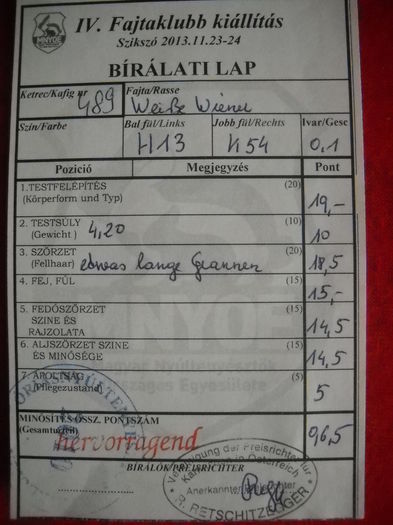 IV. Fajtaklubb kiállítás
Szikszó 2013.11.23-24
BÍRÁLATI LAP
Ketrec/Kafig nr 489 Fajta/Rasse Weiße Wiener
Szín/Farbe Bal fül/Links H13 Jobb fül/Rechts 454 Ivar/Gesc 0,1
Pozició Megjegyzés Pont
1.TESTFELÉPÍTÉS (20) 19,-
(Körperform und Typ)
2. TESTSÚLY (10) 4,20 10
(Gewicht )
3. SZŐRZET (20) 18,5
(Fellhaar) etwas lange Grannen
4. FEJ, FÜL (15) 15,-
5. FEDŐSZŐRZET (15) 14,5
SZINE ÉS
RAJZOLATA
6. ALJSZŐRZET SZINE (15) 14,5
ÉS MINŐSÉGE
7. ÁPOLTSÁG (5) 5
(Pflegezustand)
MINŐSÍTÉS ÖSSZ. PONTSZÁM 96,5
(Gesamturteil) hervorragend
BÍRÁLÓK/PREISRICHTER
Vereinigung der Preisrichter für
Österreich
Anerkannter Preisrichter
R. RETSCHITZEGGER